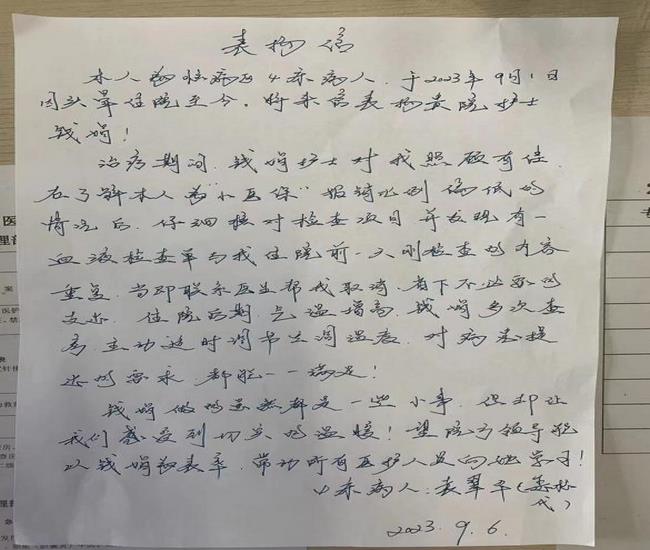 表扬信
本人为 病区4床病人。于2023年9月1日
因头晕住院至今。特来信表扬贵院护士
钱娟!
治疗期间,钱娟护士对我照顾有佳。
在了解本人为"小医保"报销比例偏低的
情况后,仔细核对检查项目,并发现有一
血液检查单与我住院前一天刚检查的内容
重复,当即联系医生帮我取消,省下不必要的
支出。住院后期,气温增高,钱娟多次查
房,主动适时调节空调温度,对病患提
出的需求,都能一一满足!
钱娟做的虽然都是一些小事,但却让
我们感受到切实的温暖!望院方领导能
以钱娟为表率,带动所有医护人员向她学习!
4床病人:袁翠
2023.9.6.